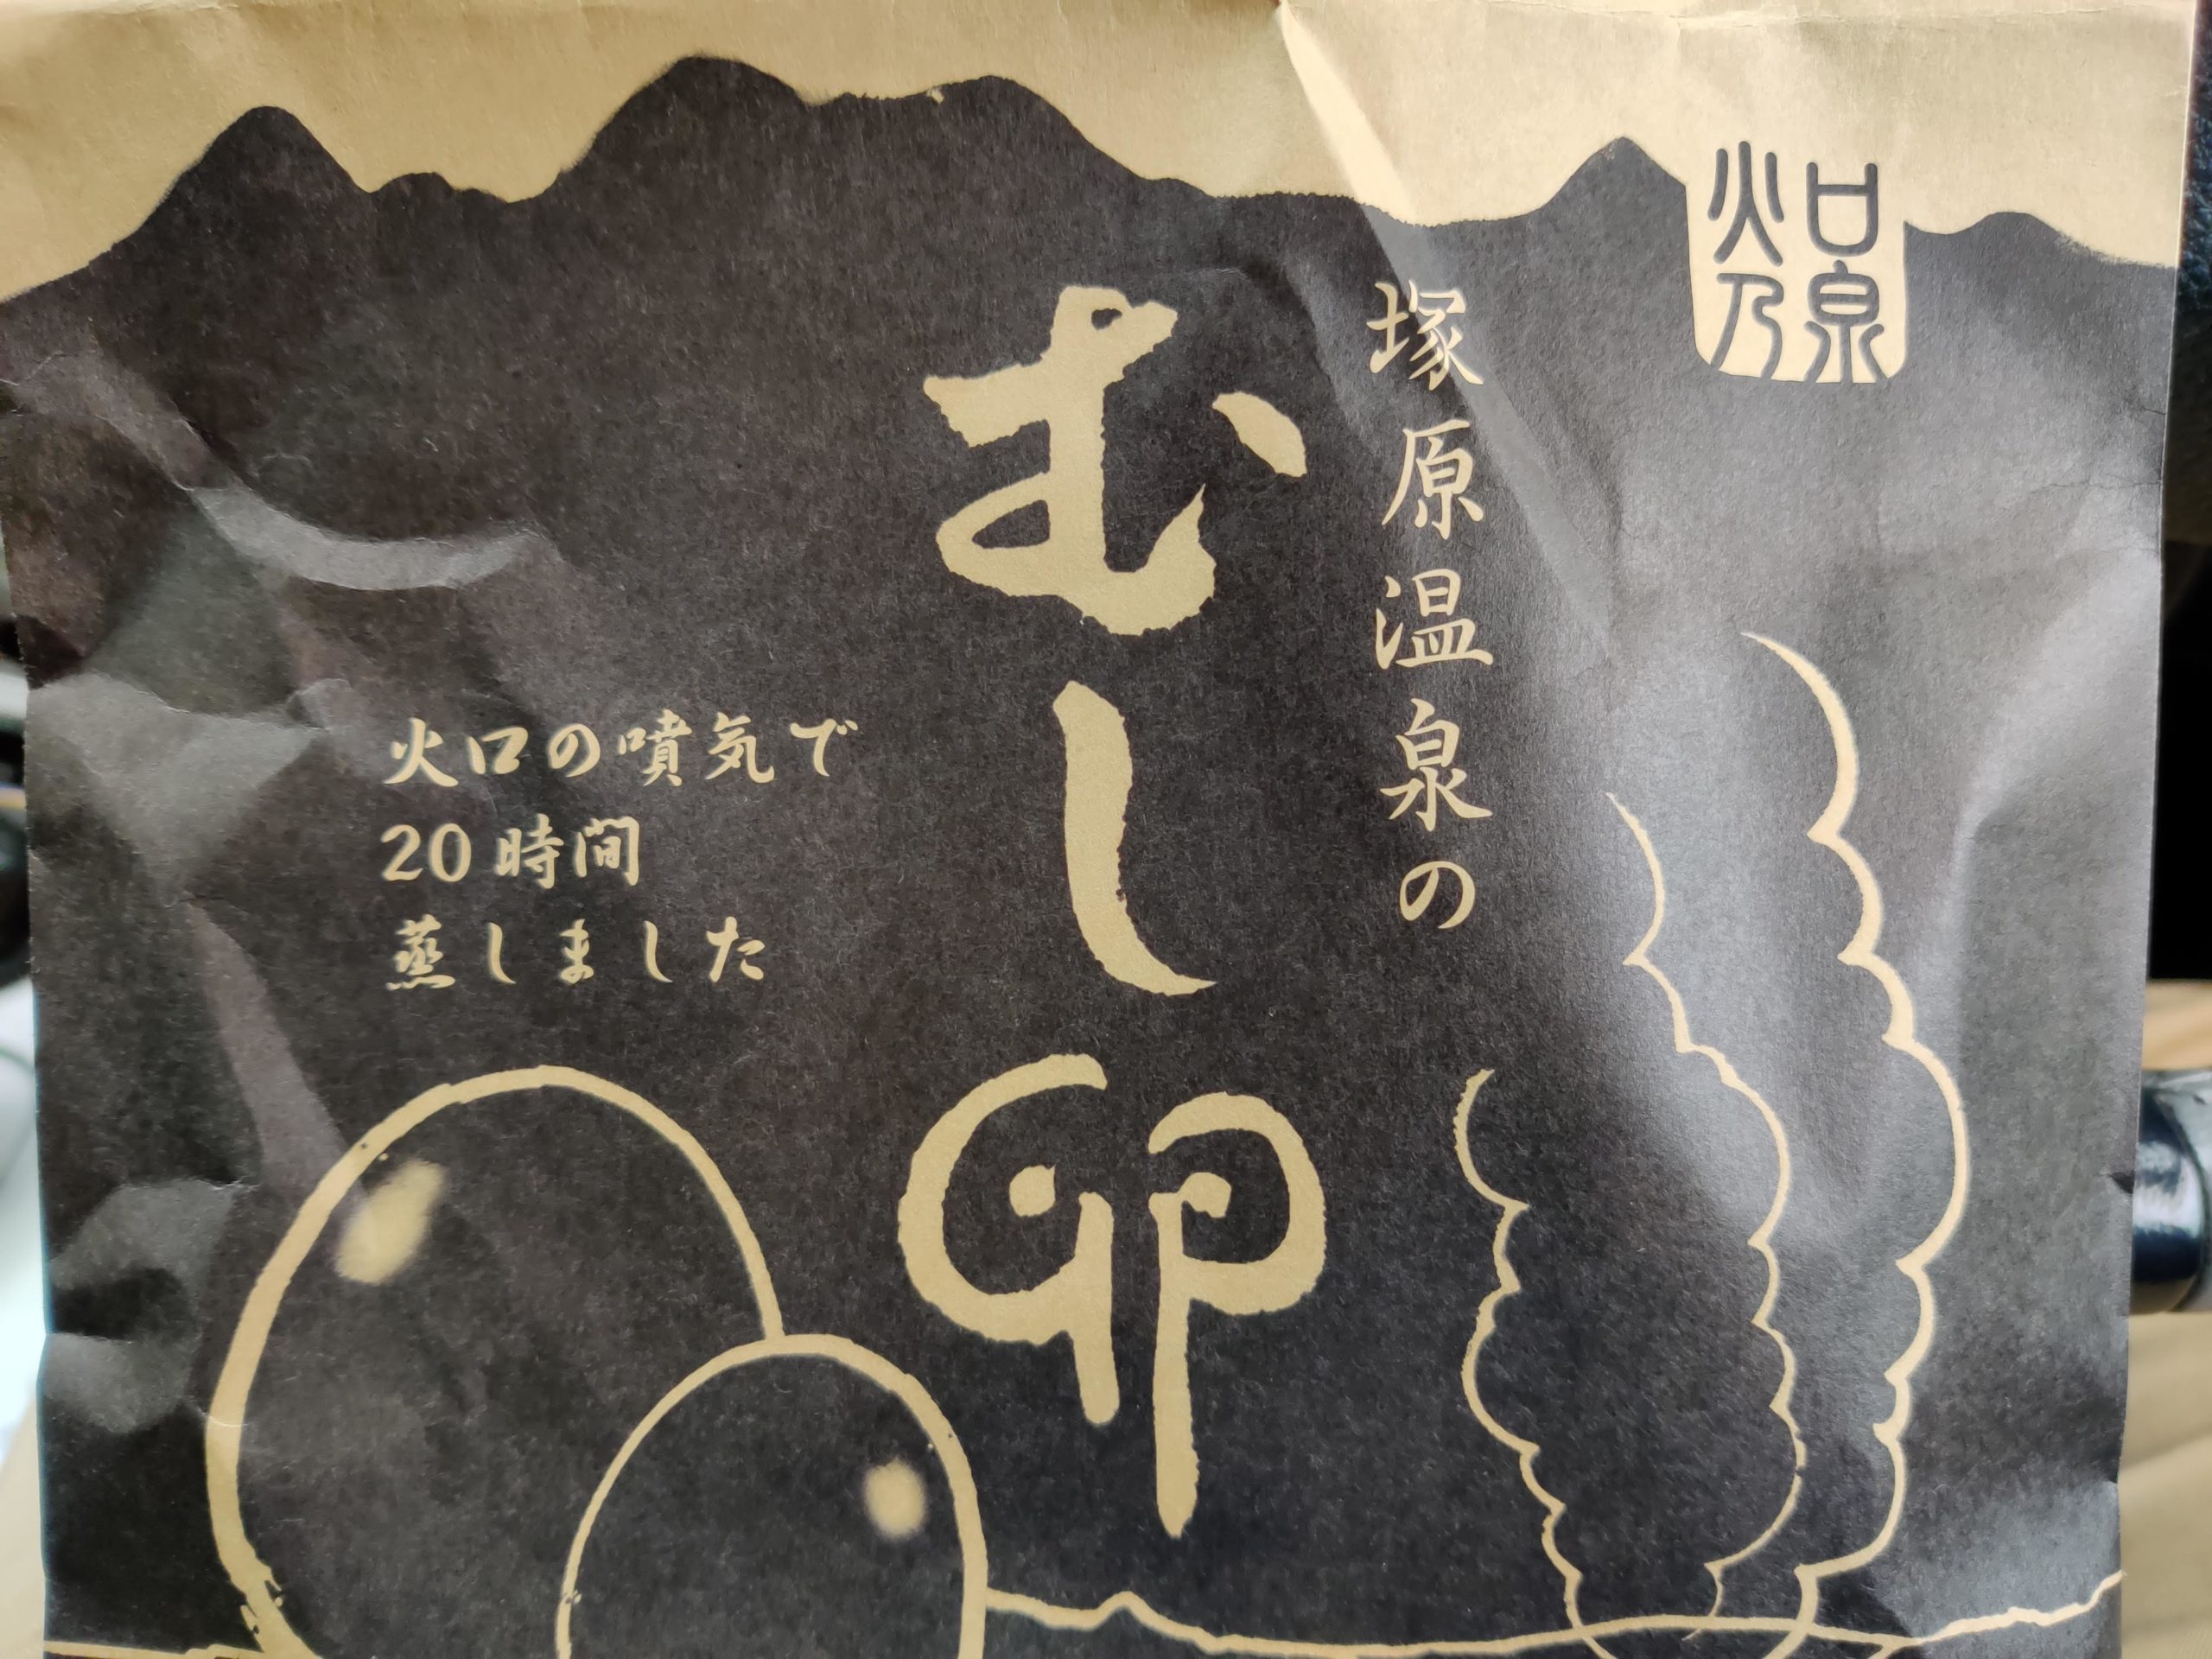 火口乃泉
塚原温泉の
むし卵
火口の噴気で
20時間
蒸しました